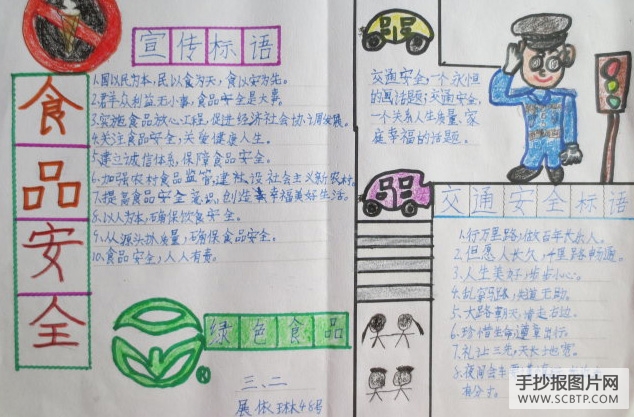 宣传标语
食品安全
1.国以民为本,民以食为天,食以安为先。
2.君手众利益无小事,食品安全是大事。
3.实施食品放心工程,促进经济社会协调发展。
4.关注食品安全,关爱健康人生。
5.建立诚信体系,保障食品安全。
6.加强农村食品监管,建设社会主义新农村。
7.提高食品安全意识,创造幸福美好生活。
8.以人为本,确保饮食安全。
9.从源头抓质量,确保食品安全。
10.食品安全,人人有责。
绿色食品
三、二
48号
交通安全,一个永恒
的画话题;交通安全,
一个关系人生质量、家
庭幸福的话题。
交通安全标语
1.行万里路,做百年长乐人。
2.但愿人长久,千里路畅通。
3.人生美好,步步小心。
5.大路朝天,请走右边。
6.珍惜生命
7.礼让三先,天长地宽。
8.夜间
有分寸。
手抄报图片网
WWW.SCBTP.COM